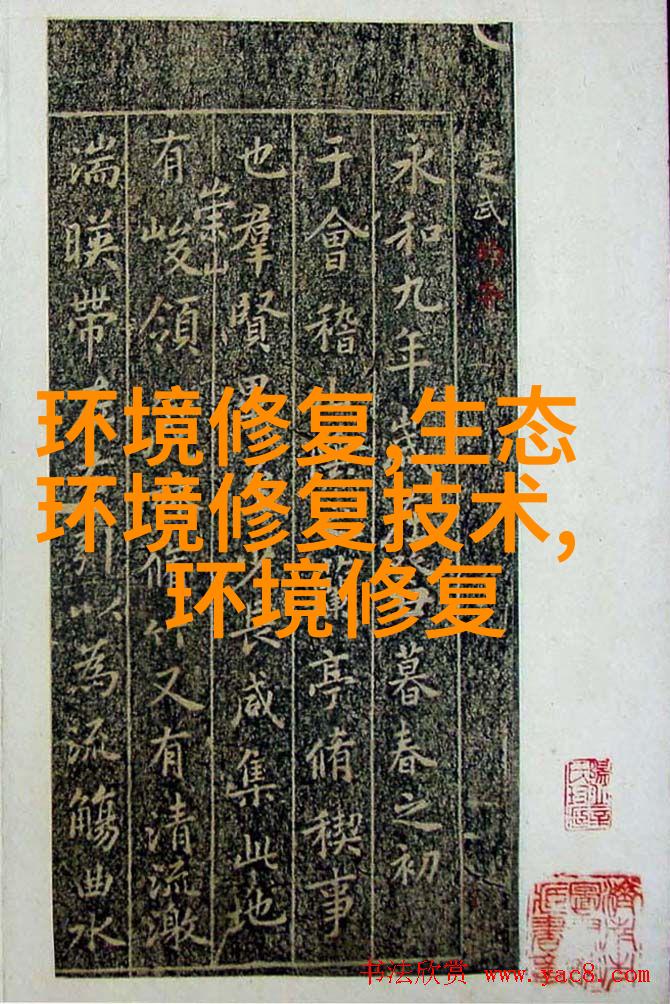 定武
永和九年歲
暮春之初
于會稽山
亭脩稧事
也羣賢畢
長咸集此地
有峻領
崇山
脩竹又有清流激
湍暎帶左右引以為流觴曲水
环境修复,生态
环境修复技术,
环境修复
书法欣赏 www.yac8.com